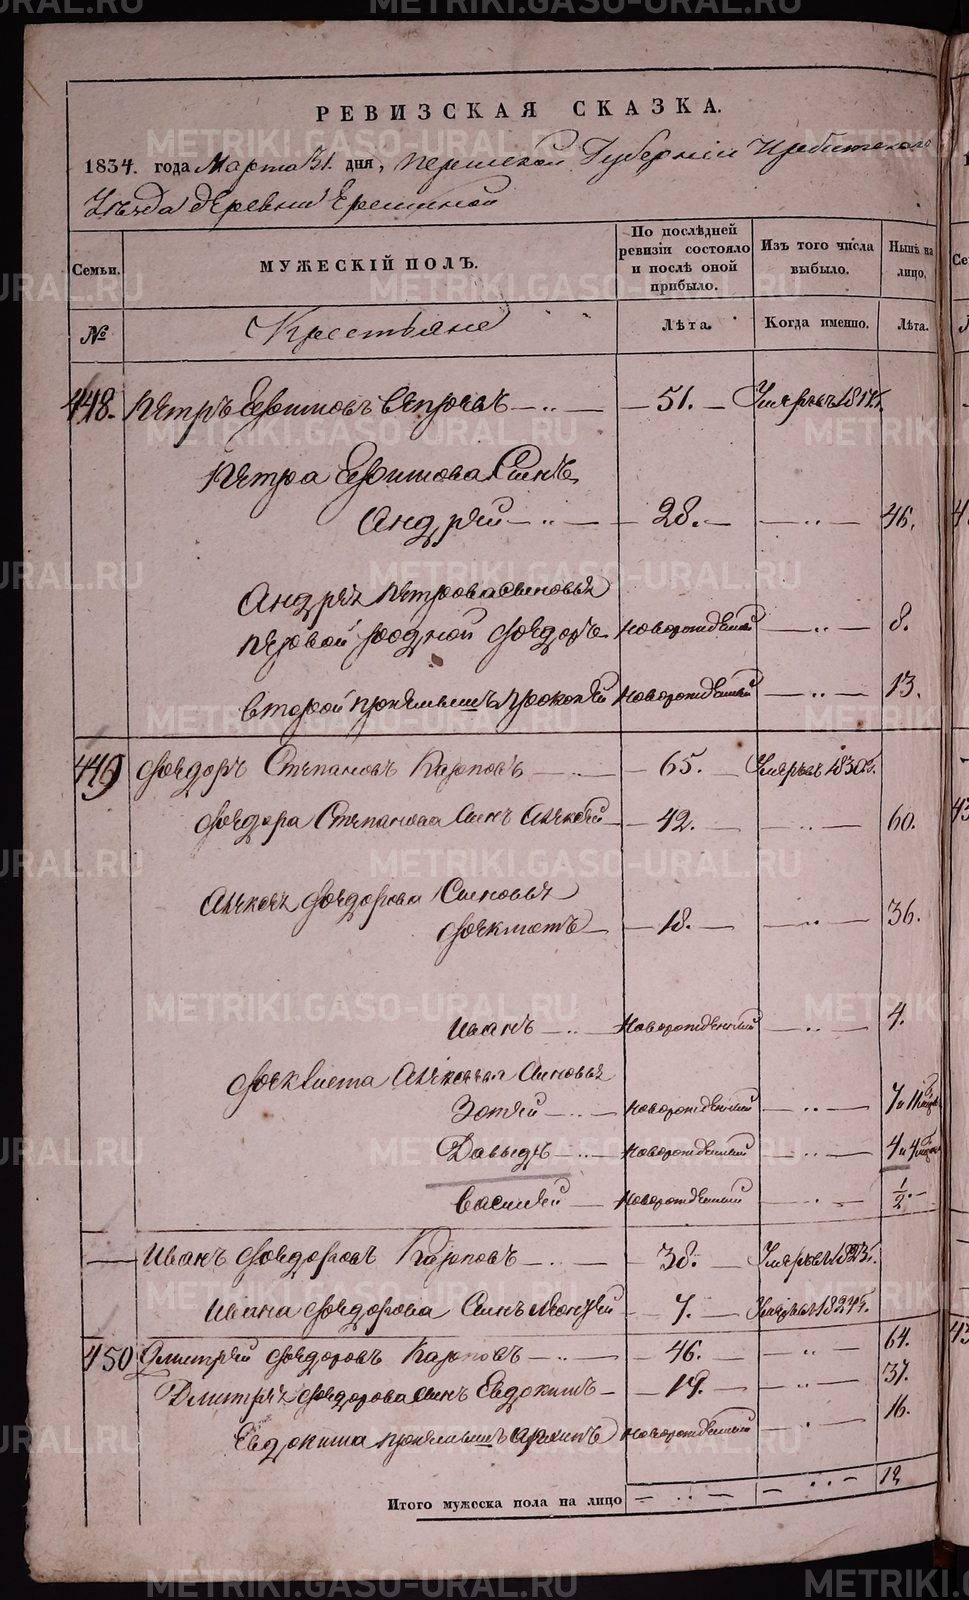 РЕВИЗСКАЯ СКАЗКА.
1834. года Марта 31. дня, Пермской Губернии Ирбитскаго
Уезда деревни Ерешиной
Семьи.
МУЖЕСКІЙ ПОЛЪ.
По послѣдней ревизіи состояло и послѣ оной прибыло.
Изъ того числа выбыло.
Нынѣ на лицо.
№
Крестьяне
Лѣта.
Когда именно.
Лѣта.
448. Петръ Ефимовъ 51. Умеръ въ 18
Петра Ефимова Сынъ
Андрей 28. 46.
Андрея Петрова сыновья
первой родной Федоръ новорожденный 8.
второй приемышъ Прокопей новорожденный 13.
449 Федоръ Степановъ Карповъ 65. Умеръ въ 1830 г.
Федора Степанова Сынъ Алексей 42. 60.
Алексея Федорова Сыновья
Феклистъ 18. 36.
Иванъ Новорожденный 4.
Феклиста Алексеева Сыновья
Зотей новорожденный 7 и 11
Давыдъ новорожденный 4 и 4
Василей новорожденный 1/2.
Иванъ Федоровъ Карповъ 38. Умеръ въ 1823 г.
Ивана Федорова Сынъ 7. Умеръ въ 1827 г.
450 Дмитрей Федоровъ Карповъ 46. 64.
Дмитрея Федорова сынъ Евдокимъ 19. 37.
Евдокима приемышъ Архипъ новорожденный 16.
Итого мужеска пола на лицо 12
METRIKI.GASO-URAL.RU